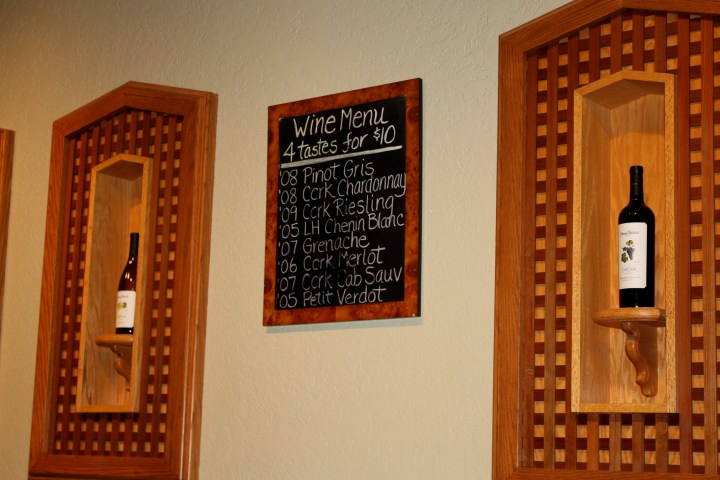 Wine Menu
4 tastes for $10
'08 Pinot Gris
'08 Ccrk Chardonnay
'09 Ccrk Riesling
'05 LH Chenin Blanc
'07 Grenache
'06 Ccrk Merlot
'07 Ccrk Cab Sauv
'05 Petit Verdot